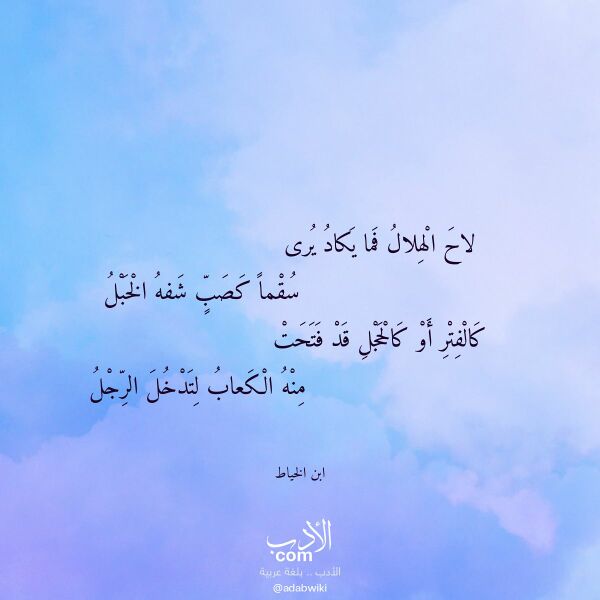 لاحَ الْهِلالُ فَما يَكادُ يُرى
سُقْماً كَصَبٍّ شَفهُ الْخَبْلُ
كَالْفِتْرِ أَوْ كَالْحَجْلِ قَدْ فَتَحَتْ
مِنْهُ الْكَعابُ لِتَدْخُلَ الرِّجْلُ
ابن الخياط
الأدب
com
الأدب .. بلغة عربية
@adabwiki